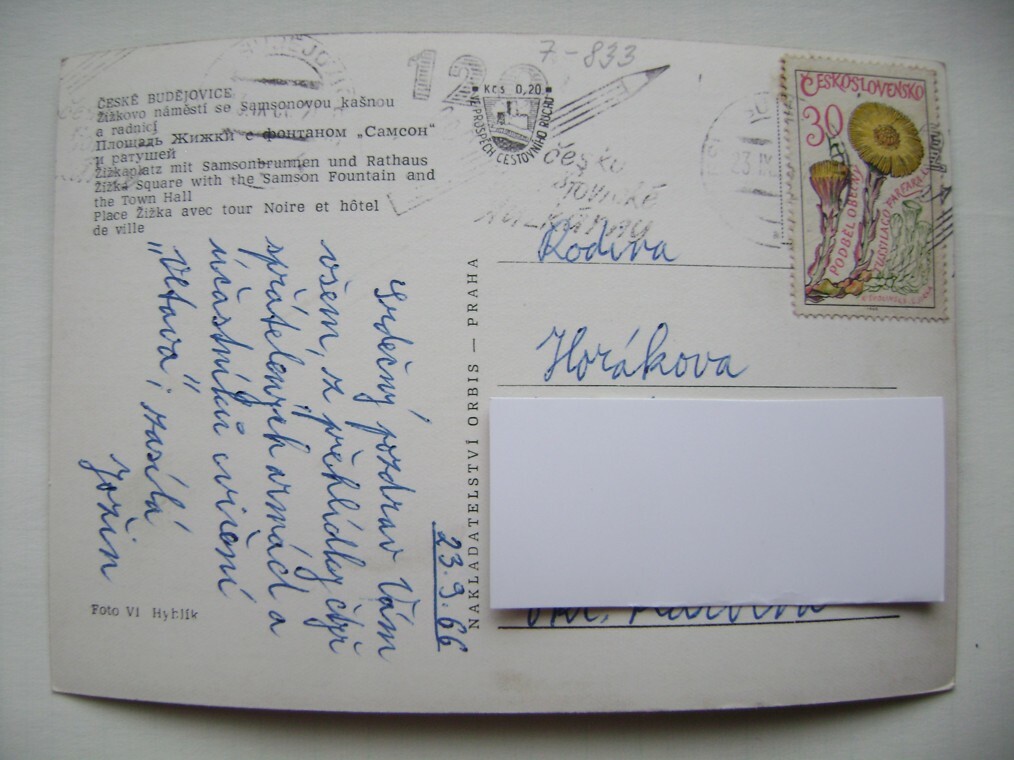 ČESKÉ BUDĚJOVICE
Žižkovo náměstí se Samsonovou kašnou
a radnicí
Площадь Жижки с фонтаном „Самсон“
и ратушей
Žižkaplatz mit Samsonbrunnen und Rathaus
Žižka Square with the Samson Fountain and
the Town Hall
Place Žižka avec tour Noire et hôtel
de ville
Srdečný pozdrav Vám
všem, z přehlídky čtyř
spřátelených armád a
účastníků cvičení
"Vltava", zasílá
Jožin
23.9.66
Foto Vl Hyblík
NAKLADATELSTVÍ ORBIS — PRAHA
7-833
120
Kčs 0,20
VE PROSPĚCH CESTOVNÍHO RUCHU
česko
slovické
23.IX
ČESKOSLOVENSKO
30
PODBĚL OBECNÝ
TUSSILAGO FARFARA L.
Rodina
Horákova